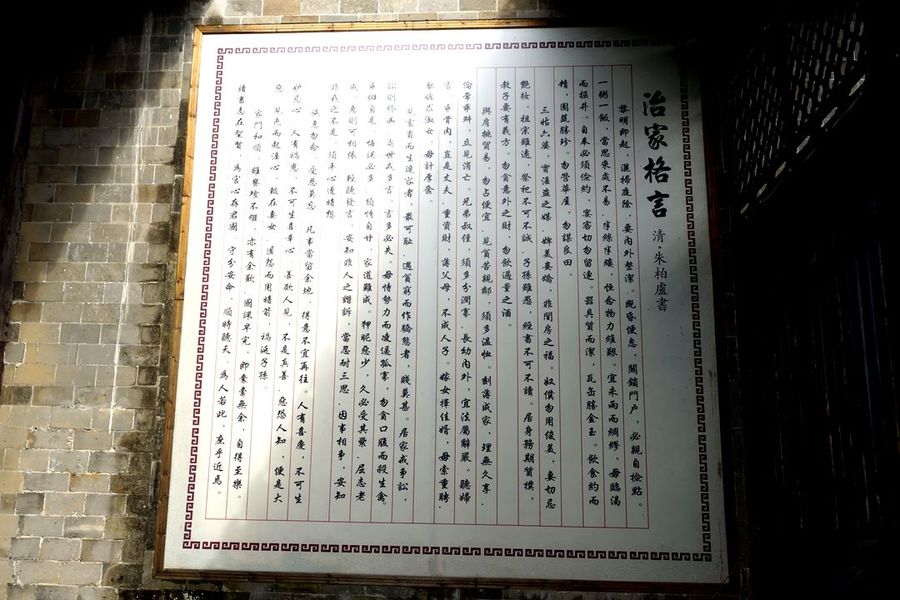 治家格言 清·朱柏盧書
黎明即起，灑掃庭除，要內外整潔。既昏便息，關鎖門戶，必親自檢點。
一粥一飯，當思來處不易，半絲半縷，恆念物力維艱。宜未雨而綢繆，毋臨渴
而掘井。自奉必須儉約，宴客切勿留連。器具質而潔，瓦缶勝金玉。飲食約而
精，園蔬勝珍。勿營華屋，勿謀良田。
三姑六婆，實淫盜之媒，婢美妾嬌，非閨房之福。奴僕勿用俊美，妻切忌
艷妝。祖宗雖遠，祭祀不可不誠，子孫雖愚，經書不可不讀。居身務期質樸，
教子要有義方。勿貪意外之財，勿飲過量之酒。
與肩挑貿易，勿占便宜，見貧苦親鄰，須多溫恤。刻薄成家，理無久享，
倫常乖舛，立見消亡。兄弟叔侄，須多分潤寡，長幼內外，宜法屬辭嚴。聽婦
言，乖骨肉，豈是丈夫，重資財，薄父母，不成人子。嫁女擇佳婿，毋索重聘，
娶媳求淑女，毋計厚奩。
見富貴而生諂容者，最可恥，遇貧窮而作驕態者，賤莫甚。居家戒爭訟，
訟則終凶，處世戒多言，言多必失。毋恃勢力而凌逼孤寡，勿貪口腹而殺生禽。
乖僻自是，悔誤必多，頹惰自甘，家道難成。狎昵惡少，久必受其累，屈志老
成，急則可相依。輕聽發言，安知非人之譖訴，當忍耐三思，因事相爭，安知
非我之不是，須平心暗想。
施惠勿念，受恩莫忘。凡事當留餘地，得意不宜再往。人有喜慶，不可生
妒忌心，人有禍患，不可生喜幸心。善欲人見，不是真善，惡恐人知，便是大
惡。見色而起淫心，報在妻女，匿怨而用暗箭，禍延子孫。
家門和順，雖饔飧不繼，亦有餘歡，國課早完，即囊橐無餘，自得至樂。
讀書志在聖賢，為官心存君國。守分安命，順時聽天，為人若此，庶乎近焉。